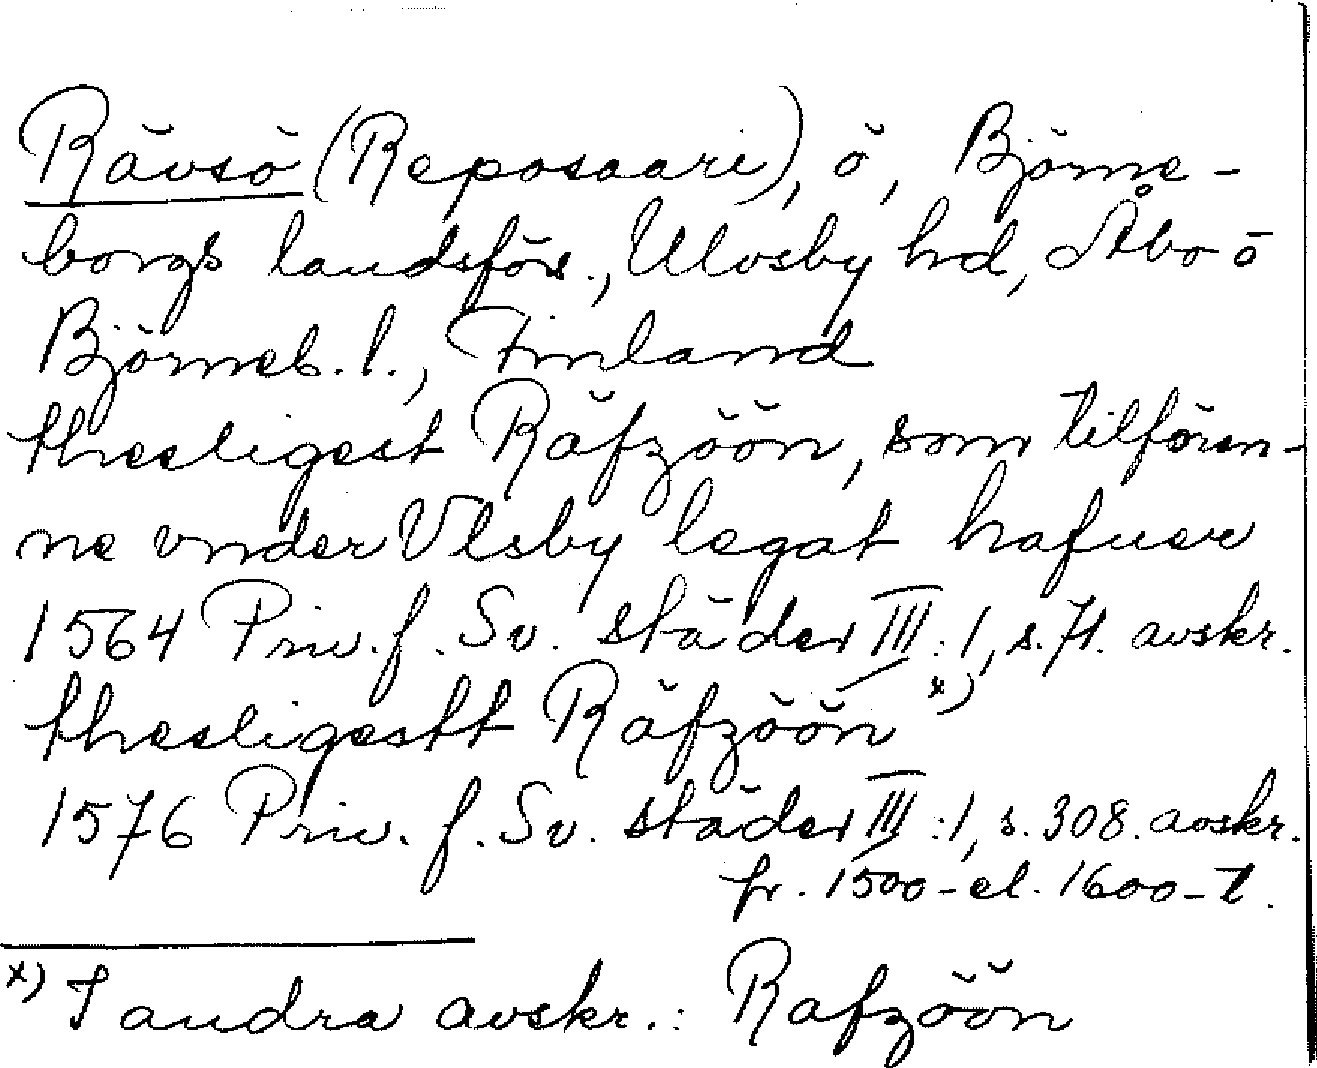 Rävsö (Reposaari), ö, Björne-
borgs landsförs., Ulvsby hd, Åbo o
Björneb. l., Finland
thesligest Räfzöön, som tilfören-
ne vnder Vlsby legat hafuer
1564 Priv. f. Sv. städer III:1, s. 71. avskr.
thesligestt Räfzöön x)
1576 Priv. f. Sv. städer III:1, s. 308. avskr.
fr. 1500- el. 1600-t.
x) I andra avskr.: Rafzöön